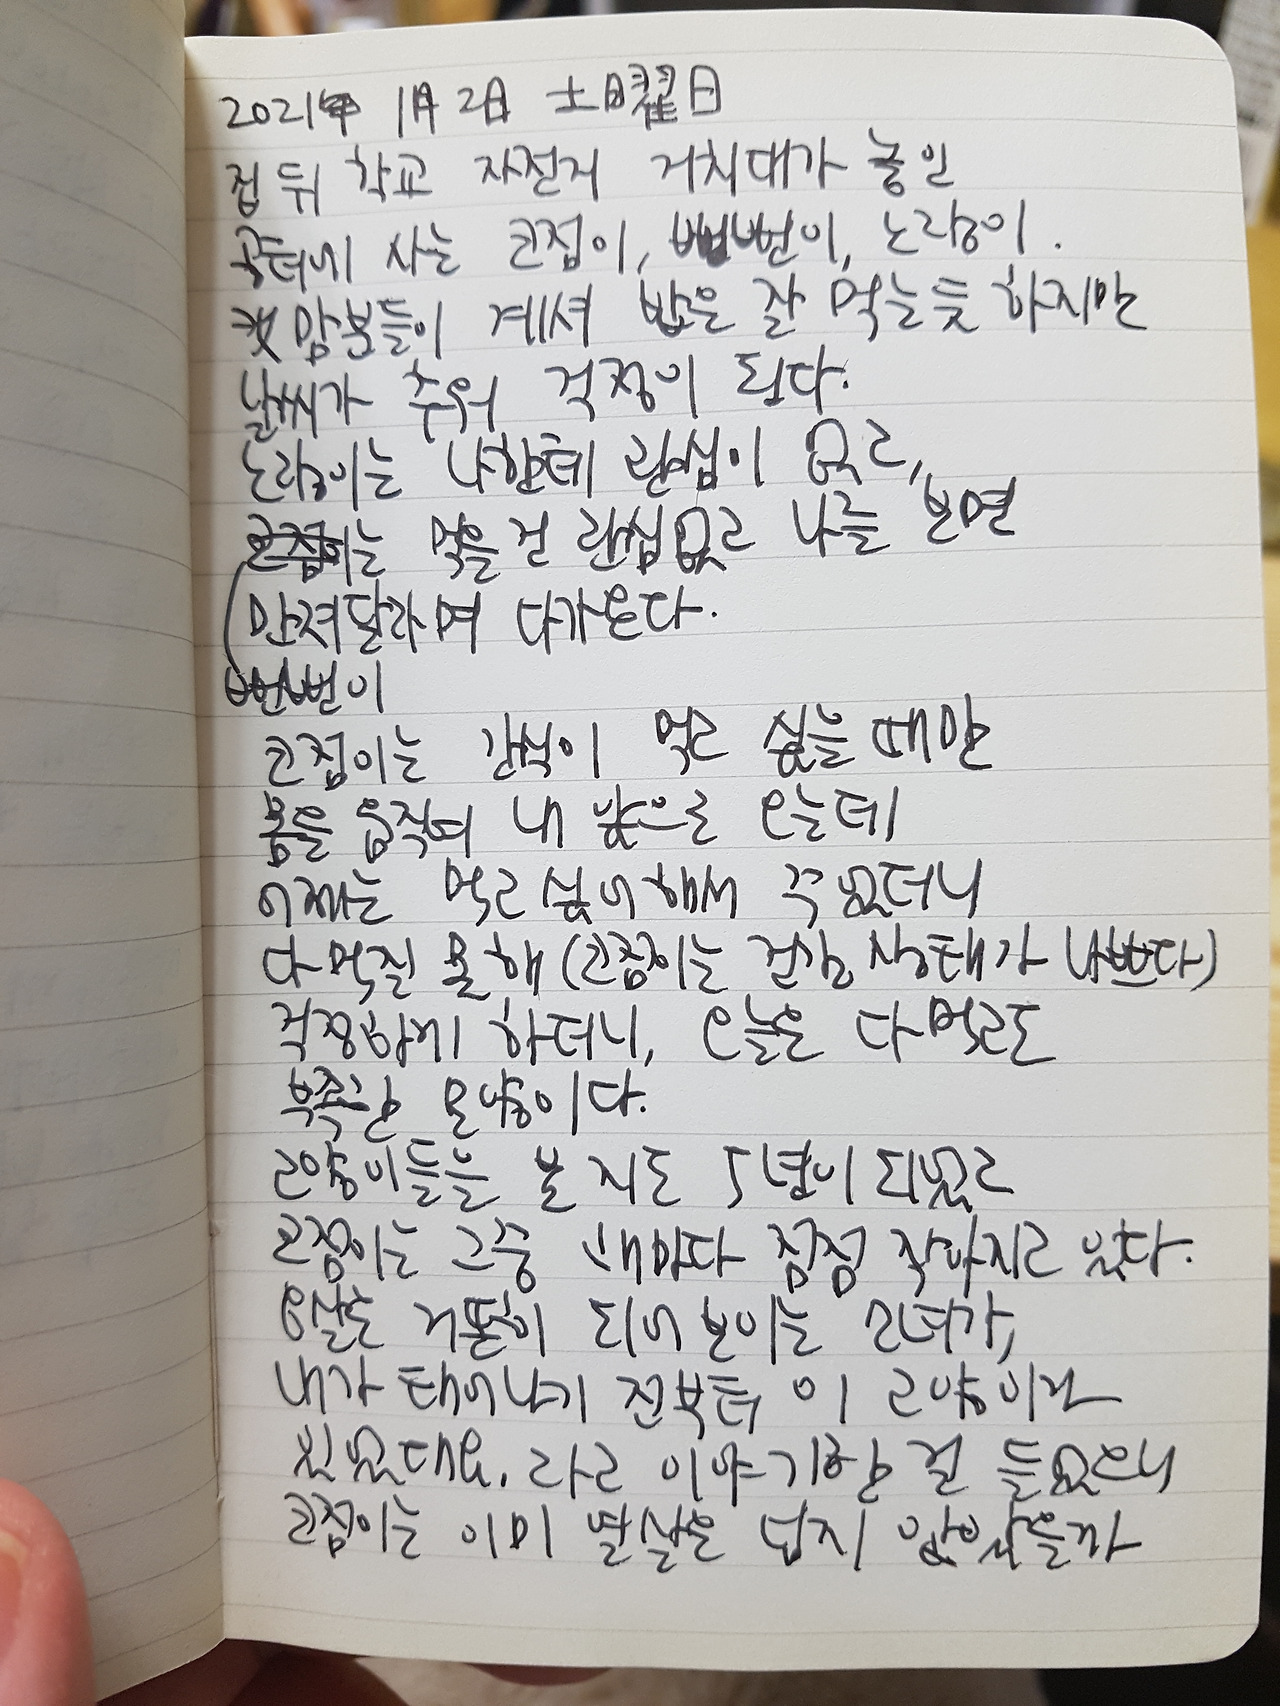 2021年 1月 2日 土曜日
집 뒤 학교 자전거 거치대가 놓인
공터에 사는 코점이, 뻔뻔이, 노랑이.
캣맘분들이 계셔 밥은 잘 먹는듯 하지만
날씨가 추워 걱정이 된다.
노랑이는 나한테 관심이 없고,
코점이는 먹을 건 관심없고 나를 보면
만져달라며 다가온다.
뻔뻔이
코점이는 간식이 먹고 싶을때만
몸을 움직여 내 앞으로 오는데
어제는 먹고싶어해서 주었더니
다 먹질 못해 (코점이는 건강 상태가 나쁘다)
걱정하게 하더니, 오늘은 다 먹고도
부족한 모양이다.
고양이들을 본 지도 5년이 되었고
코점이는 그중 해마다 점점 작아지고 있다.
살은 거뜬히 되어 보이는 소녀가,
내가 태어나기 전부터 이 고양이가
있었대요. 라고 이야기한 걸 들었으니
코점이는 이미 열살은 넘지 않았을까